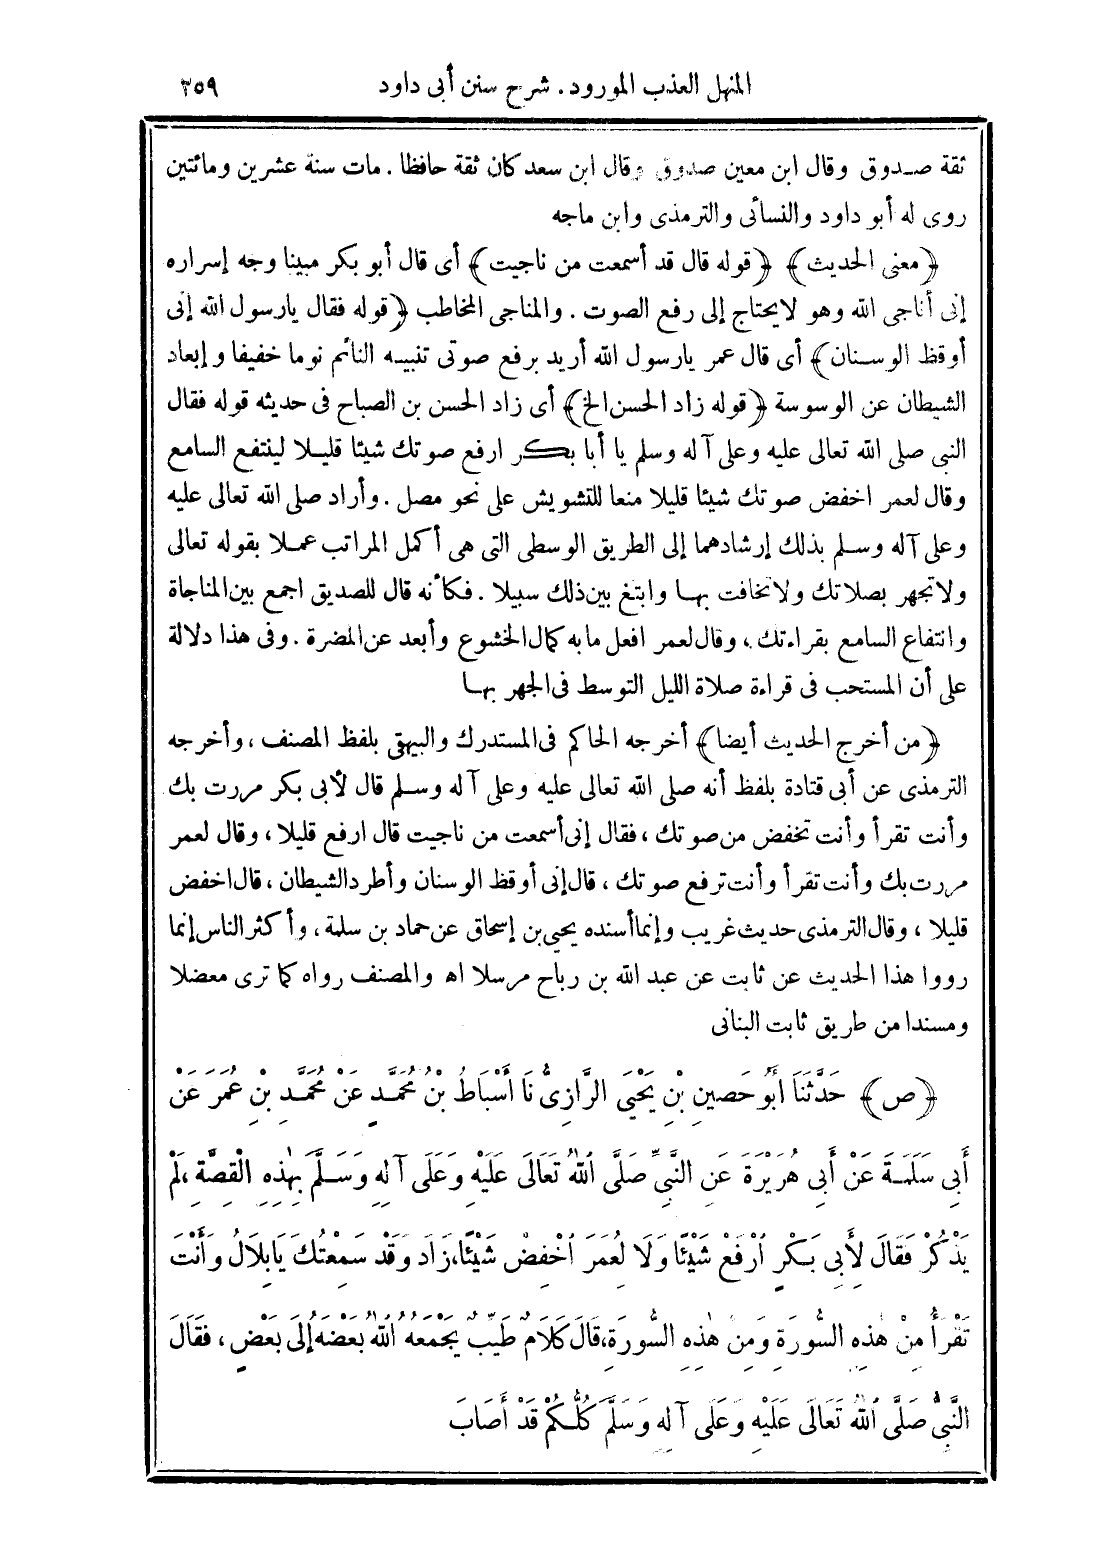 المنهل العذب المورود . شرح سنن أبى داود ٣٥٩
ثقة صدوق وقال ابن معين صدوق وقال ابن سعد كان ثقة حافظا . مات سنة عشرين ومائتين
روى له أبو داود والنسائى والترمذى وابن ماجه
﴿معنى الحديث﴾ ﴿قوله قال قد أسمعت من ناجيت﴾ أى قال أبو بكر مبينا وجه إسراره
إنى أناجى الله وهو لايحتاج إلى رفع الصوت . والمناجى المخاطب ﴿قوله فقال يارسول الله إنى
أوقظ الوسنان﴾ أى قال عمر يارسول الله أريد برفع صوتى تنبيه النائم نوما خفيفا وإبعاد
الشيطان عن الوسوسة ﴿قوله زاد الحسن الخ﴾ أى زاد الحسن بن الصباح فى حديثه قوله فقال
النبى صلى الله تعالى عليه وعلى آله وسلم يا أبا بكر ارفع صوتك شيئا قليلا لينتفع السامع
وقال لعمر اخفض صوتك شيئا قليلا منعا للتشويش على نحو مصل . وأراد صلى الله تعالى عليه
وعلى آله وسلم بذلك إرشادهما إلى الطريق الوسطى التى هى أكمل المراتب عملا بقوله تعالى
ولاتجهر بصلاتك ولاتخافت بها وابتغ بين ذلك سبيلا . فكأنه قال للصديق اجمع بين المناجاة
وانتفاع السامع بقراءتك ، وقال لعمر افعل مابه كمال الخشوع وأبعد عن المضرة . وفى هذا دلالة
على أن المستحب فى قراءة صلاة الليل التوسط فى الجهر بها
﴿من أخرج الحديث أيضا﴾ أخرجه الحاكم فى المستدرك والبيهقى بلفظ المصنف ، وأخرجه
الترمذى عن أبى قتادة بلفظ أنه صلى الله تعالى عليه وعلى آله وسلم قال لأبى بكر مررت بك
وأنت تقرأ وأنت تخفض من صوتك ، فقال إنى أسمعت من ناجيت قال ارفع قليلا ، وقال لعمر
مررت بك وأنت تقرأ وأنت ترفع صوتك ، قال إنى أوقظ الوسنان وأطرد الشيطان ، قال اخفض
قليلا ، وقال الترمذى حديث غريب وإنما أسنده يحيى بن إسحاق عن حماد بن سلمة ، وأكثر الناس إنما
رووا هذا الحديث عن ثابت عن عبد الله بن رباح مرسلا اه والمصنف رواه كما ترى معضلا
ومسندا من طريق ثابت البنانى
﴿ص﴾ حَدَّثَنَا أَبُو حَصِينِ بْنِ يَحْيَى الرَّازِىُّ نَا أَسْبَاطُ بْنُ مُحَمَّدٍ عَنْ مُحَمَّدِ بْنِ عُمَرَ عَنْ
أَبِى سَلَمَةَ عَنْ أَبِى هُرَيْرَةَ عَنِ النَّبِىِّ صَلَّى اللهُ تَعَالَى عَلَيْهِ وَعَلَى آلِهِ وَسَلَّمَ بِهٰذِهِ الْقِصَّةِ ، لَمْ
يَذْكُرْ فَقَالَ لِأَبِى بَكْرٍ ارْفَعْ شَيْئًا وَلَا لِعُمَرَ اخْفِضْ شَيْئًا، زَادَ وَقَدْ سَمِعْتُكَ يَابِلَالُ وَأَنْتَ
تَقْرَأُ مِنْ هٰذِهِ السُّورَةِ وَمِنْ هٰذِهِ السُّورَةِ، قَالَ كَلَامٌ طَيِّبٌ يَجْمَعُهُ اللهُ بَعْضَهُ إِلَى بَعْضٍ ، فَقَالَ
النَّبِىُّ صَلَّى اللهُ تَعَالَى عَلَيْهِ وَعَلَى آلِهِ وَسَلَّمَ كُلُّكُمْ قَدْ أَصَابَ